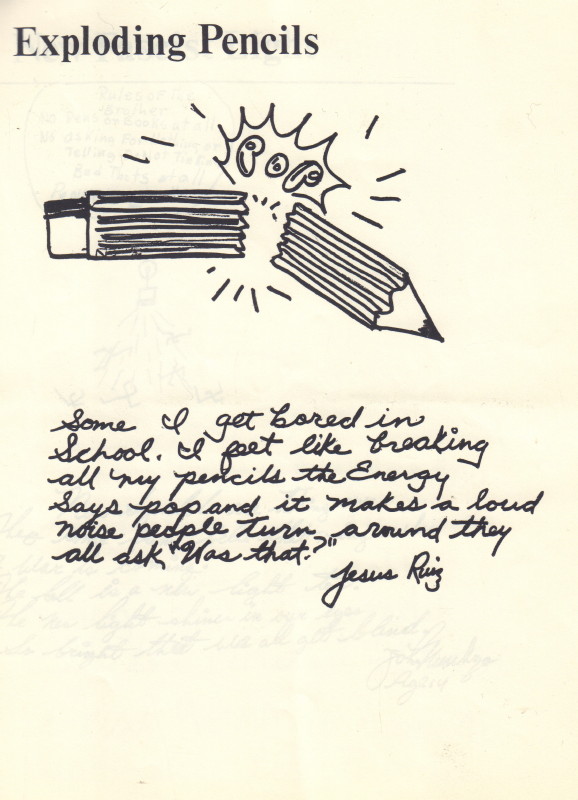 Exploding Pencils
Pop
Some I get bored in
School. I feet like breaking
all my pencils the Energy
Says pop and it makes a loud
noise people turn around they
all ask, "Was that?"
Jesus Ruiz